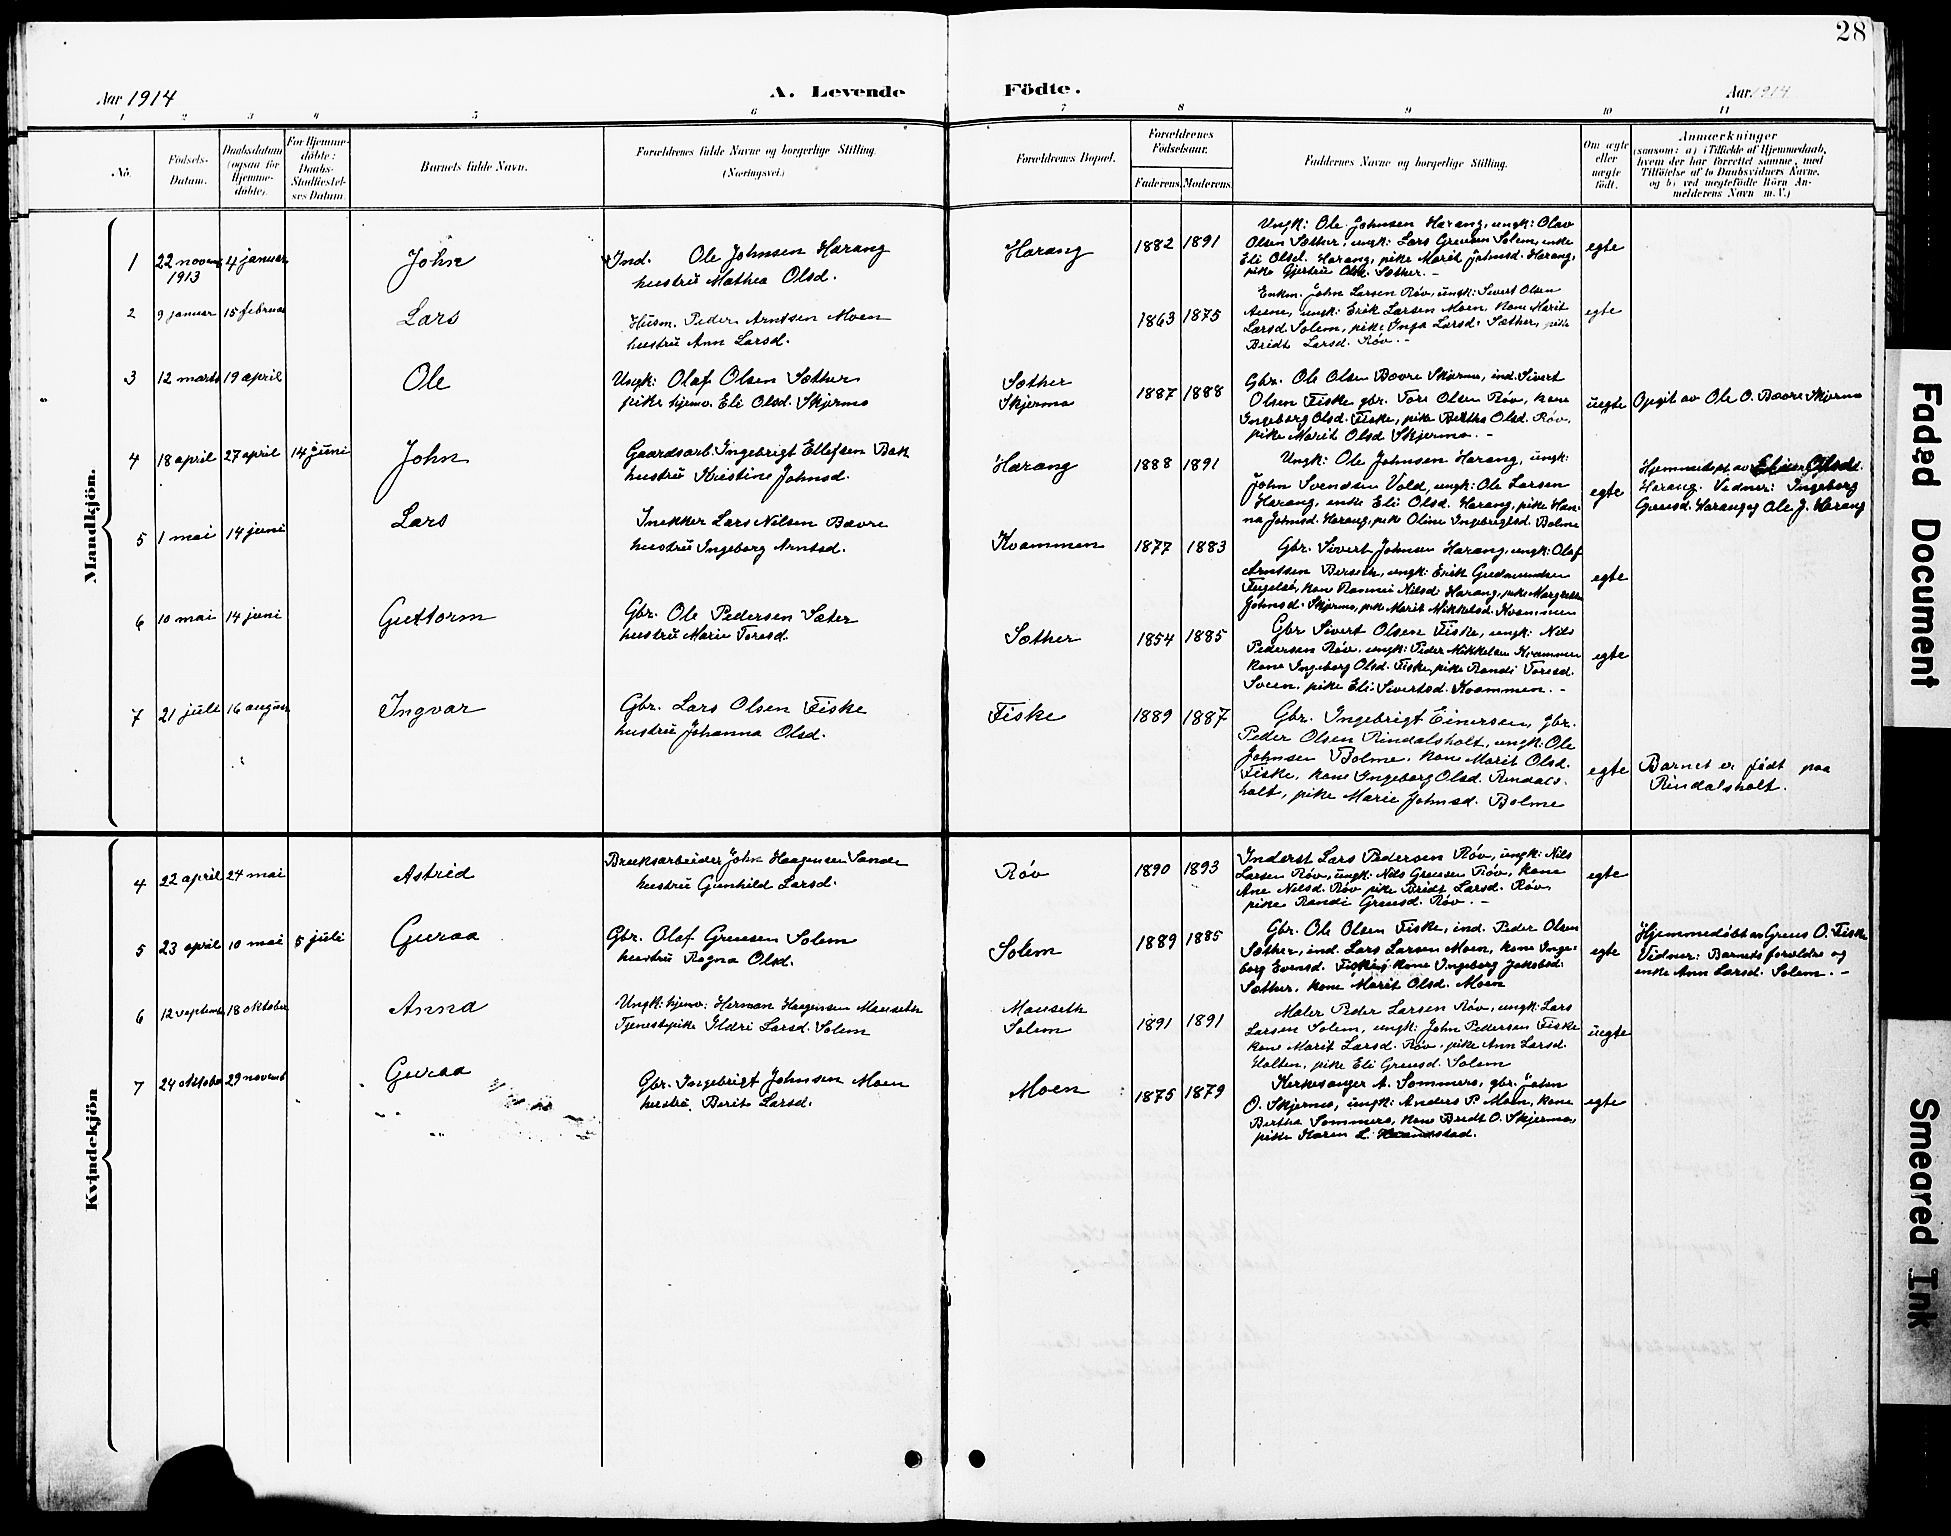 28
Aar 1914
A. Levende
Födte.
Aar 1914
1 2 3 4 5 6 7 8 9 10 11
No.
Födsels-
Datum.
Daabsdatum
(ogsaa for
Hjemme-
döbte).
For Hjemme-
döbte:
Daabs-
Stadfæstel-
ses Datum.
Barnets fulde Navn.
Forældrenes fulde Navne og borgerlige Stilling.
(Næringsvei.)
Forældrenes Bopæl.
Forældrenes
Födselsaar.
Faderens.
Moderens.
Faddernes Navne og borgerlige Stilling.
Om ægte
eller
uægte
født.
Anmærkninger
(saasom: a) i Tilfælde af Hjemmedaab,
hvem der har forrettet samme, med
Tilföielse af to Daabsvidners Navne,
og b) ved uægtefödte Börn An-
melderens Navn m. V.)
Mandkjön.
1
22 novem
1913
4 januar
John
Ind. Ole Johnsen Harang
hustru Mathea Olsd.
Harang
1882
1891
Ungk: Ole Johnsen Harang, ungk: Olav
Olsen Sæther, ungk: Lars Gruesen Solem, enke
Eli Olsd. Harang, pike Marit Johnsd. Harang,
pike Gjertru Olsd. Sæther. –
egte
2
9 januar
15 februar
Lars
Husm. Peder Arntsen Moen
hustru Ann Larsd.
1863
1875
Enkm. John Larsen Röv, ungk: Sivert Olsen
Aune, ungk: Erik Larsen Moen, kone Marit
Larsd Solem, pike Inga Larsd. Sæther, pike
Bridt Larsd. Röv. –
egte
3
12 marts
19 april
Ole
Ungk: Olaf Olsen Sæther
pike hjemv. Eli Olsd. Skjermo
Sæther
Skjermo
1887
1888
Gbr. Ole Olsen Bævre Skjermo, ind. Sivert
Olsen Fiske gbr. Tore Olsen Röv, kone
Ingeborg Olsd. Fiske, pike Bertha Olsd. Röv,
pike Marit Olsd Skjermo. –
uegte
Opgit av Ole O. Bævre Skjermo
4
18 april
27 april
14 juni
John
Gaardsarb. Ingebrigt Ellefsen Bak
hustru Kristine Johnsd.
Harang
1888
1891
Ungk: Ole Johnsen Harang, ungk:
John Svendsen Vold, ungk: Ole Larsen
Harang, enke Eli Olsd. Harang, pike Han-
na Johnsd. Harang, pike Oline Ingebrigtsd. Bolme
egte
Hjemmedöpt av Olsd.
Harang. Vidner: Ingeborg
Gruesd. Harang og Ole J. Harang
5
1 mai
14 juni
Lars
Snekker Lars Nilsen Bævre
hustru Ingeborg Arntsd.
Kvammen
1877
1883
Gbr. Sivert Johnsen Harang, ungk: Olaf
Arntsen Berseth, ungk: Erik Gudmundsen
Fugelsö, kone Rannei Nilsd. Harang, pike Margrethe
Johnsd. Skjermo, pike Marit Mikkelsd. Kvammen
egte
6
10 mai
14 juni
Guttorm
Gbr. Ole Pedersen Sæter
hustru Marie Toresd.
Sæther
1854
1885
Gbr Sivert Olsen Fiske, ungk: Nils
Pedersen Röv, ungk: Peder Mikkelsen Kvammen
kone Ingeborg Olsd. Fiske, pike Randi Toresd.
Sveen, pike Eli Sivertsd. Kvammen. –
egte
7
21 juli
16 august
Ingvar
Gbr. Lars Olsen Fiske
hustru Johanna Olsd.
Fiske
1889
1887
Gbr. Ingebrigt Einersen, gbr.
Peder Olsen Rindalsholt, ungk: Ole
Johnsen Bolme, kone Marit Olsd.
Fiske, kone Ingeborg Olsd. Rindals-
holt, pike Marie Johnsd. Bolme
egte
Barnet er födt paa
Rindalsholt.
Kvindekjön
4
22 april
24 mai
Astrid
Bruksarbeider John Haagensen Sande
hustru Gunhild Larsd.
Röv
1890
1893
Inderst Lars Pedersen Röv, ungk: Nils
Larsen Röv, ungk: Nils Gruesen Röv, kone
Ane Nilsd. Röv pike Bridt Larsd. Röv,
pike Randi Gruesd. Röv. –
egte
5
23 april
10 mai
5 juli
Guraa
Gbr. Olaf Gruesen Solem
hustru Ragna Olsd.
Solem
1889
1885
Gbr. Ole Olsen Fiske, ind. Peder Olsen
Sæther, ind. Lars Larsen Moen, kone Inge-
borg Evensd. Fiske, kone Ingeborg Jakobsd.
Sæther, kone Marit Olsd. Moen
egte
Hjemmedöbt av Grues O. Fiske
Vidner: Barnets forældre og
enke Ann Larsd. Solem. –
6
12 septemb
18 oktober
Anna
Ungk: hjemv: Herman Haagensen Mauseth
Tjenestepike Ildri Larsd. Solem
Mauseth
Solem
1891
1891
Maler Peder Larsen Röv, ungk: Lars
Larsen Solem, ungk: John Pedersen Fiske
kone Marit Larsd. Röv, pike Ann Larsd.
Holten, pike Eli Gruesd. Solem
uegte
7
24 oktober
29 novemb
Guraa
Gbr. Ingebrigt Johnsen Moen
hustru Berit Larsd.
Moen
1875
1879
Kirkesanger A. Sommerö, gbr. John
O. Skjermo, ungk: Anders P. Moen, kone
Bertha Sommerö, kone Bridt O. Skjermo,
pike Karen L.
egte
Faded Document
Smeared Ink